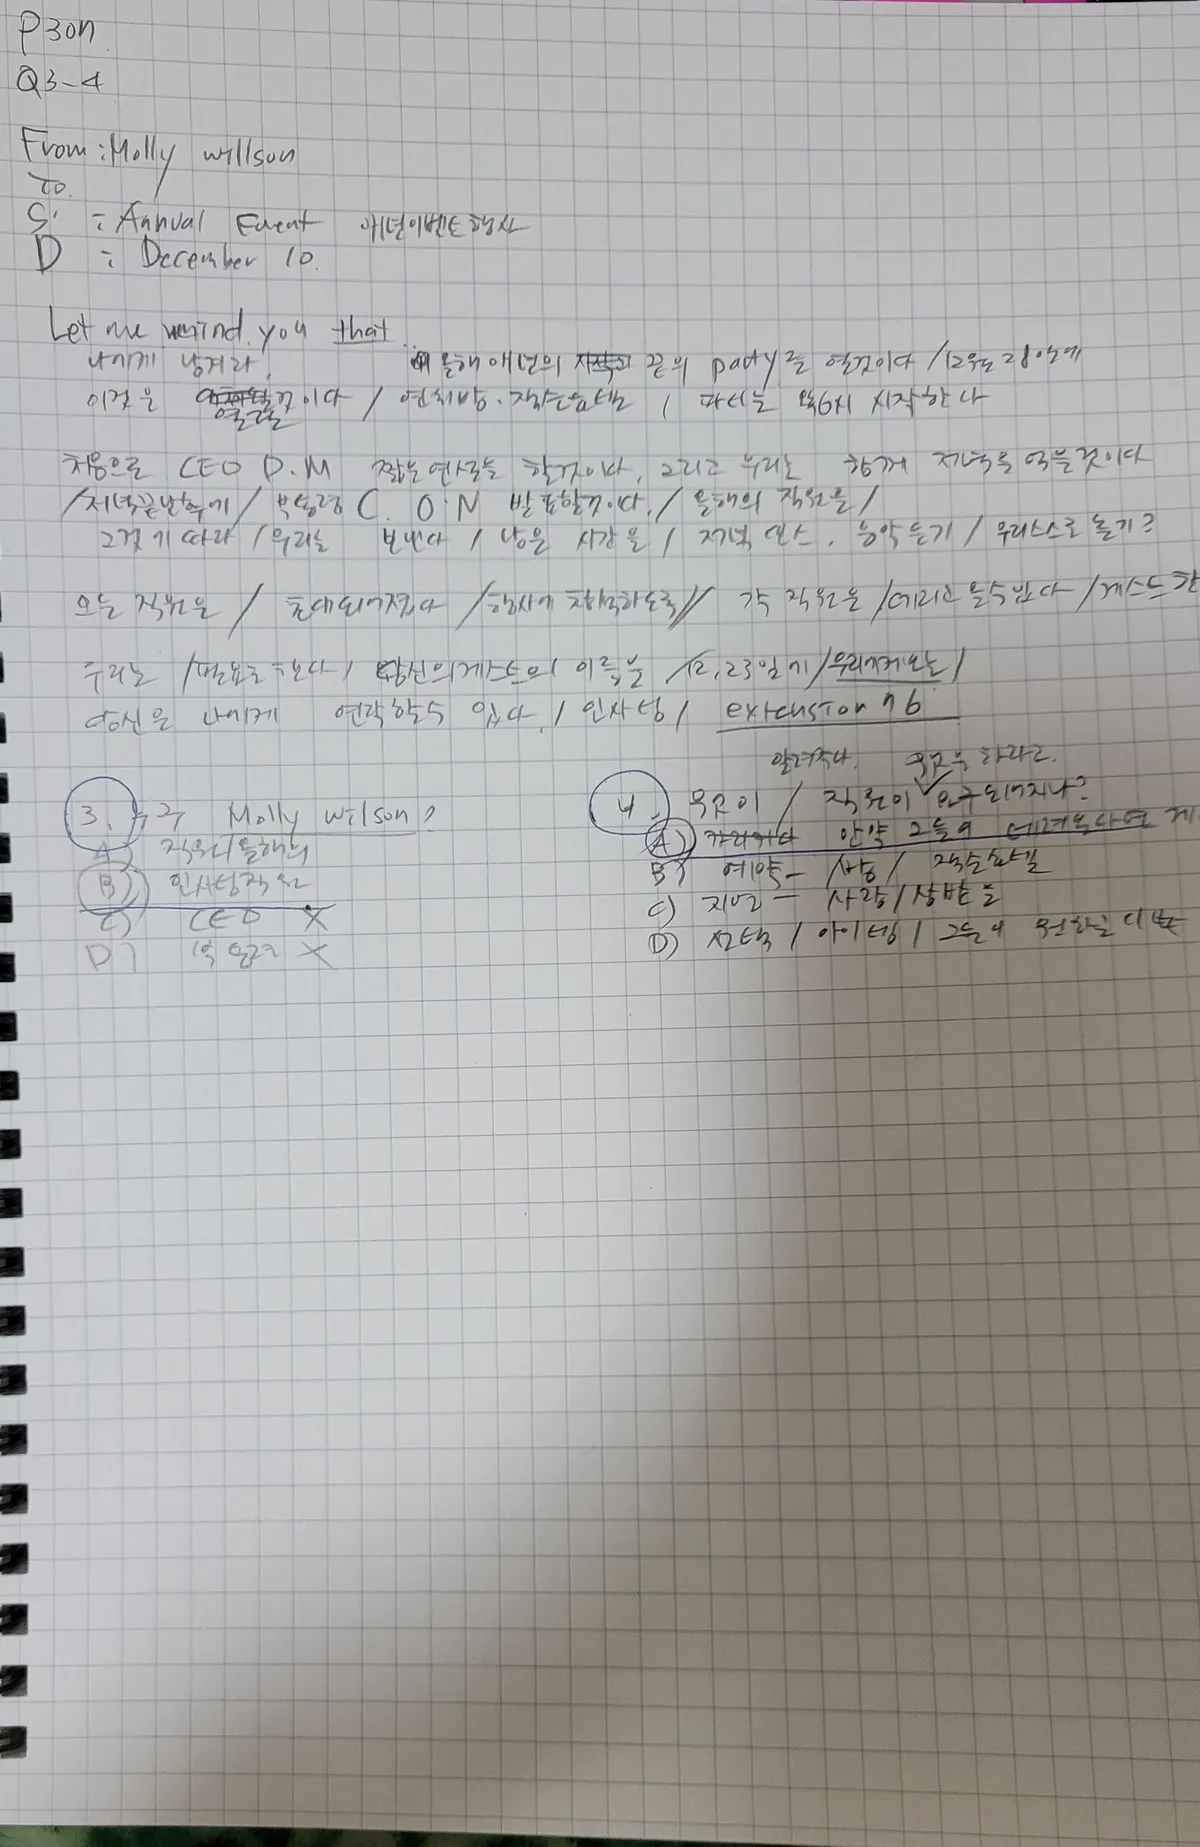 P30n
Q3-4
From: Molly willson
To.
S : Annual Event 애년이벤트행사
D : December 10.
Let me remind you that
나에게 남겨라, 올해 애년의 끝의 party를 열것이다 /12월 28일에
이것은 열릴것이다 / 연회방. 작손호텔 / 파티는 6시 시작한다
처음으로 CEO D.M 짧은연설을 할것이다, 그리고 우리는 함께 저녁을 먹을것이다
/저녁끝난후에/ 부사장 C. O.N 발표할것이다. / 올해의 직원을 /
그것에 따라 /우리는 보낸다 / 남은 시간을 / 저녁 댄스, 음악듣기 / 우리스스로 놀기?
모든 직원은 / 초대되어졌다 /행사에 참석하도록// 각 직원은 /데리고 올수있다 /게스트 한
우리는 /필요로 한다 / 당신의게스트의 이름을 /12,23일에/우리에게
당신은 나에게 연락할수 있다. / 인사팀 / 76
알려주다. 하라고.
3. 누구 Molly wilson?
A) 직원의올해의
B) 인사팀직원
C) CEO X
D) X
4. 무엇이 / 직원이 요구되어지나?
A) 가리키다 만약 그들이 데려온다면 게
B) 예약 - / 잭손호텔
C) 지명 - 사람/상받을
D) 선택 / 아이템 / 그들이 원하는